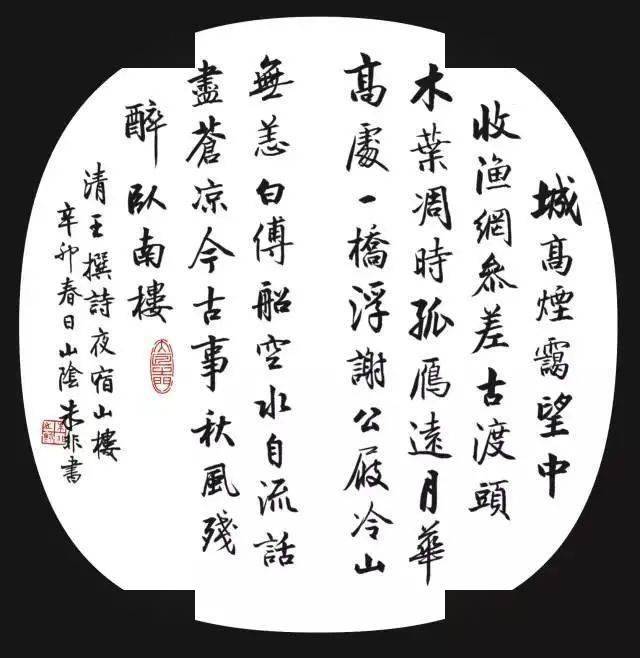 城高煙靄望中
收漁網叅差古渡頭
木葉凋時孤鴈遠月華
高處一橋浮謝公屐冷山
無恙白傅船空水自流話
盡蒼凉今古事秋風殘
醉臥南樓
清王撰詩夜宿山樓
辛卯春日山陰朱非書